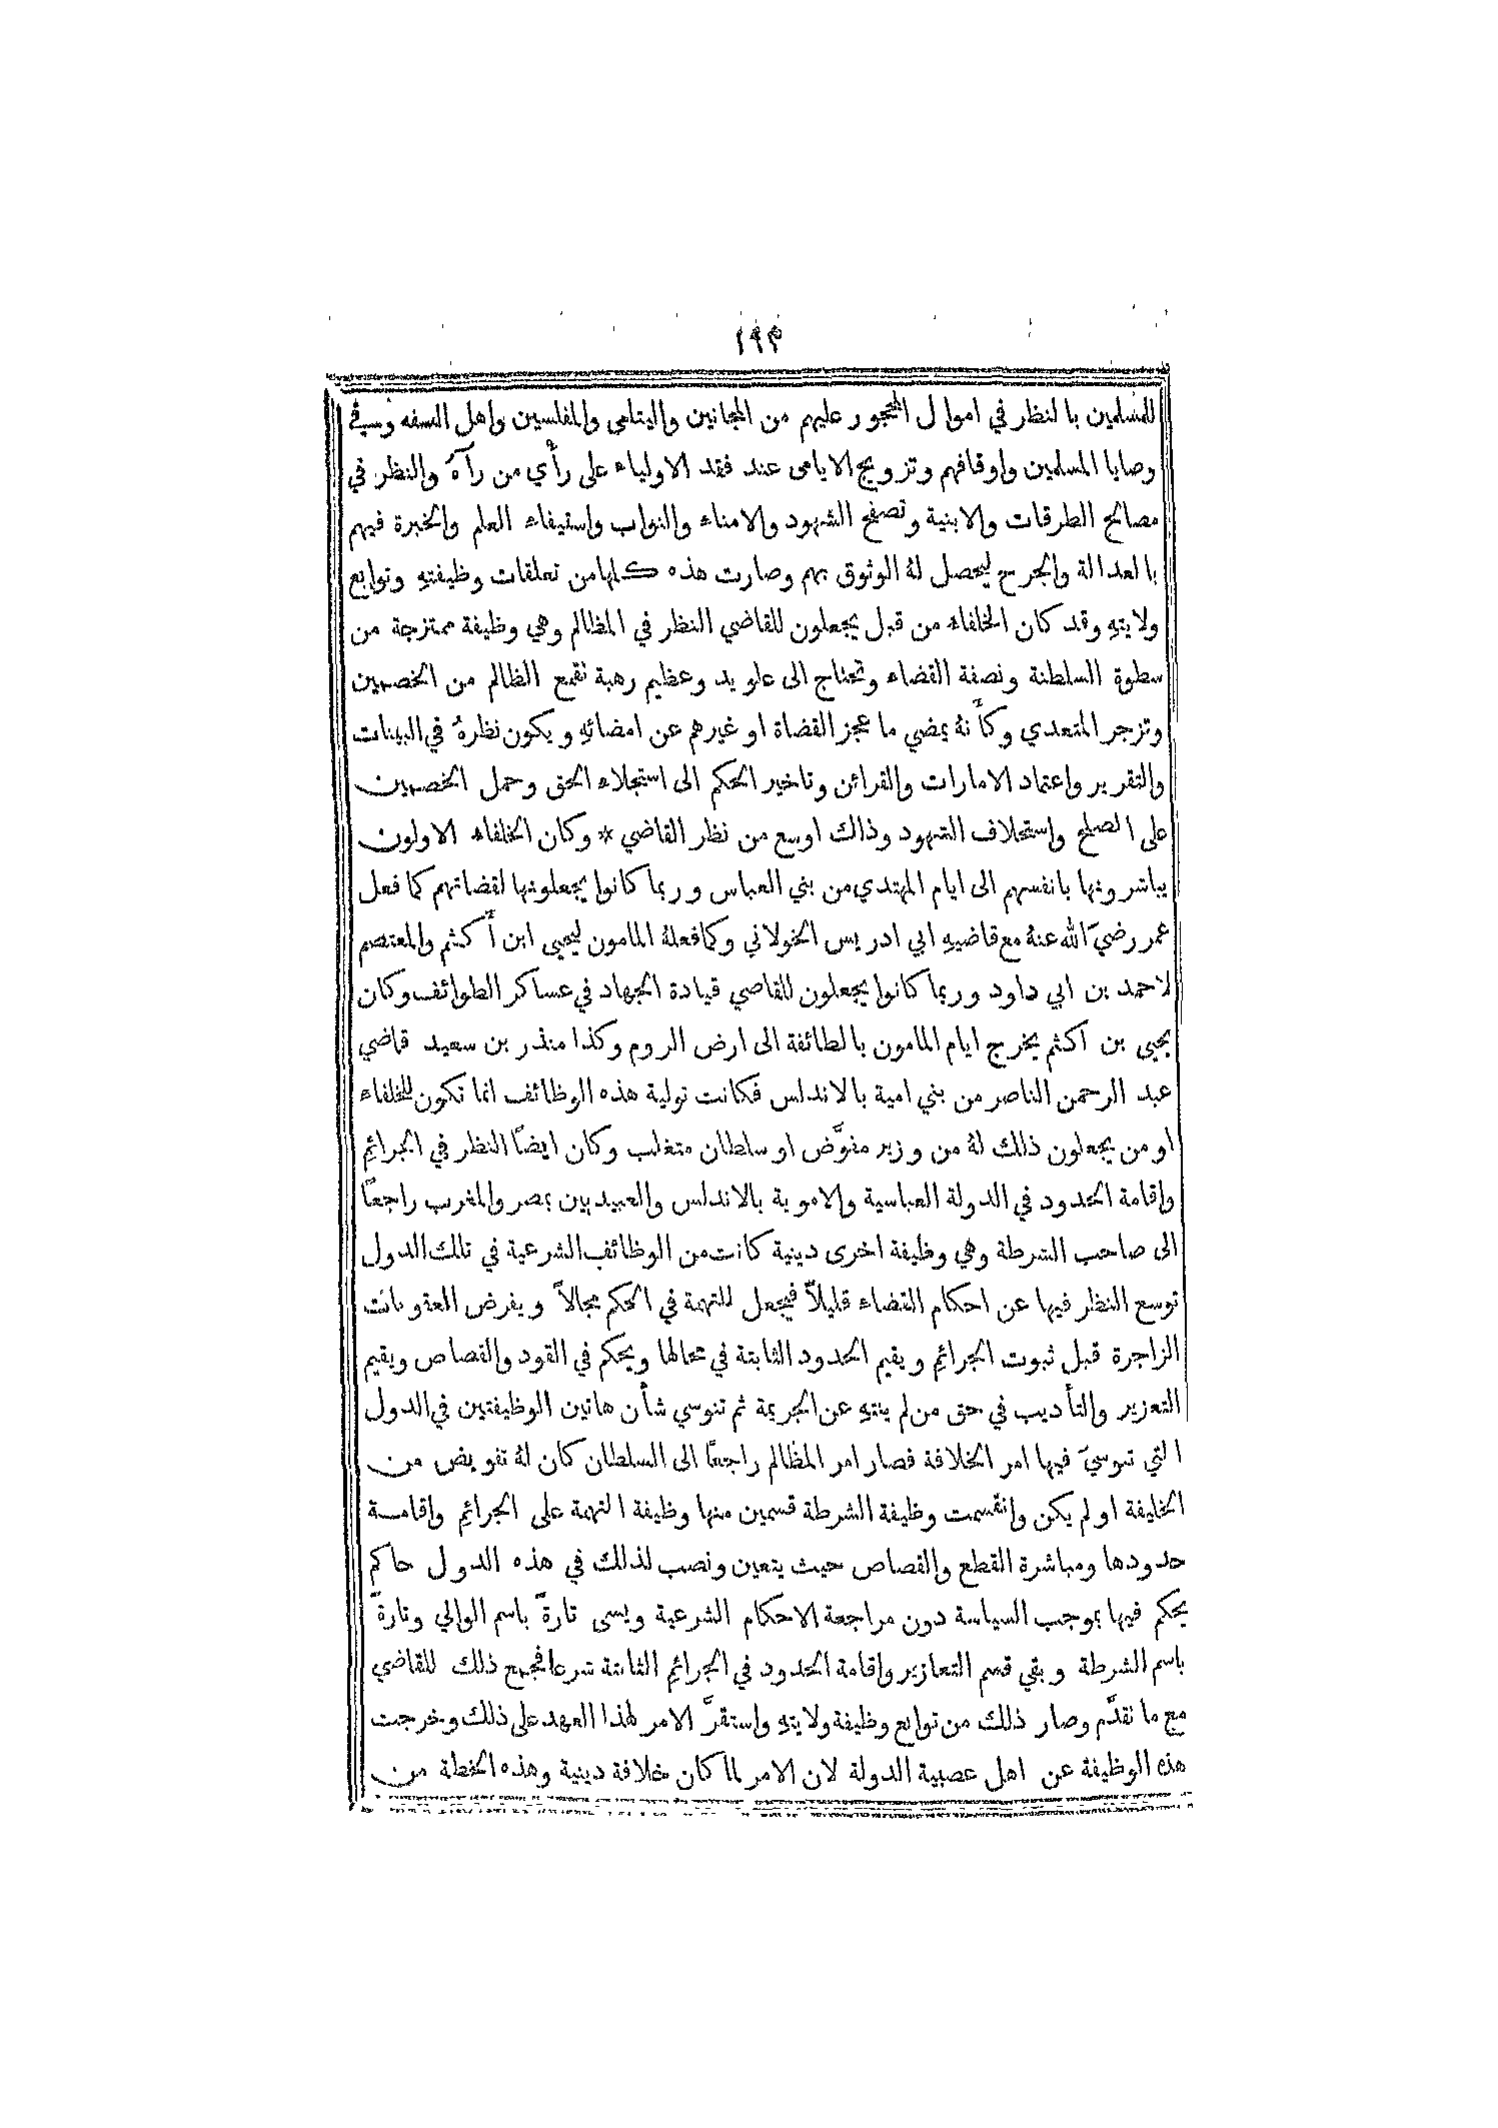 ١٩٣
للمسلمين بالنظر في اموال المحجور عليهم من المجانين واليتامى والمفلسين واهل السفه وفي
وصايا المسلمين واوقافهم وتزويج الايامى عند فقد الاولياء على رأي من رآهُ والنظر في
مصالح الطرقات والابنية وتصفح الشهود والامناء والنواب واستيفاء العلم والخبرة فيهم
بالعدالة والجرح ليحصل لهُ الوثوق بهم وصارت هذه كلها من تعلقات وظيفتهِ وتوابع
ولايتهِ وقد كان الخلفاء من قبل يجعلون للقاضي النظر في المظالم وهي وظيفة ممتزجة من
سطوة السلطنة ونصفة القضاء وتحتاج الى علو يد وعظيم رهبة تقمع الظالم من الخصمين
وتزجر المتعدي وكأَنهُ يمضي ما عجز القضاة او غيرهم عن امضائهِ ويكون نظرهُ في البينات
والتقرير واعتماد الامارات والقرائن وتاخير الحكم الى استجلاء الحق وحمل الخصمين
على الصلح واستحلاف الشهود وذلك اوسع من نظر القاضي * وكان الخلفاء الاولون
يباشرونها بانفسهم الى ايام المهتدي من بني العباس وربما كانوا يجعلونها لقضاتهم كما فعل
عمر رضيَ الله عنهُ مع قاضيهِ ابي ادريس الخولاني وكما فعلهُ المامون ليحيى ابن أَكثم والمعتصم
لاحمد بن ابي داود وربما كانوا يجعلون للقاضي قيادة الجهاد في عساكر الطوائف وكان
يحيى بن اكثم يخرج ايام المامون بالطائفة الى ارض الروم وكذا منذر بن سعيد قاضي
عبد الرحمن الناصر من بني امية بالاندلس فكانت تولية هذه الوظائف انما تكون للخلفاء
او من يجعلون ذلك لهُ من وزير مفوَّض او سلطان متغلب وكان ايضًا النظر في الجرائمِ
واقامة الحدود في الدولة العباسية والاموية بالاندلس والعبيديين بمصر والمغرب راجعًا
الى صاحب الشرطة وهي وظيفة اخرى دينية كانت من الوظائف الشرعية في تلك الدول
توسع النظر فيها عن احكام القضاء قليلاً فيجعل للتهمة في الحكم مجالاً ويفرض العقوبات
الزاجرة قبل ثبوت الجرائمِ ويقيم الحدود الثابتة في محالها ويحكم في القود والقصاص ويقيم
التعزير والتأديب في حق من لم ينتهِ عن الجريمة ثم تنوسي شأن هاتين الوظيفتين في الدول
التي تنوسيَ فيها امر الخلافة فصار امر المظالم راجعًا الى السلطان كان لهُ تفويض من
الخليفة او لم يكن وانقسمت وظيفة الشرطة قسمين منها وظيفة التهمة على الجرائمِ واقامة
حدودها ومباشرة القطع والقصاص حيث يتعين ونصب لذلك في هذه الدول حاكم
يحكم فيها بموجب السياسة دون مراجعة الاحكام الشرعية ويسمى تارةً باسم الوالي وتارةً
باسم الشرطة وبقي قسم التعازير واقامة الحدود في الجرائمِ الثابتة شرعا فجمع ذلك للقاضي
مع ما تقدَّم وصار ذلك من توابع وظيفة ولايتهِ واستقرَّ الامر لهذا العهد على ذلك وخرجت
هذه الوظيفة عن اهل عصبية الدولة لان الامر لما كان خلافة دينية وهذه الخطة من